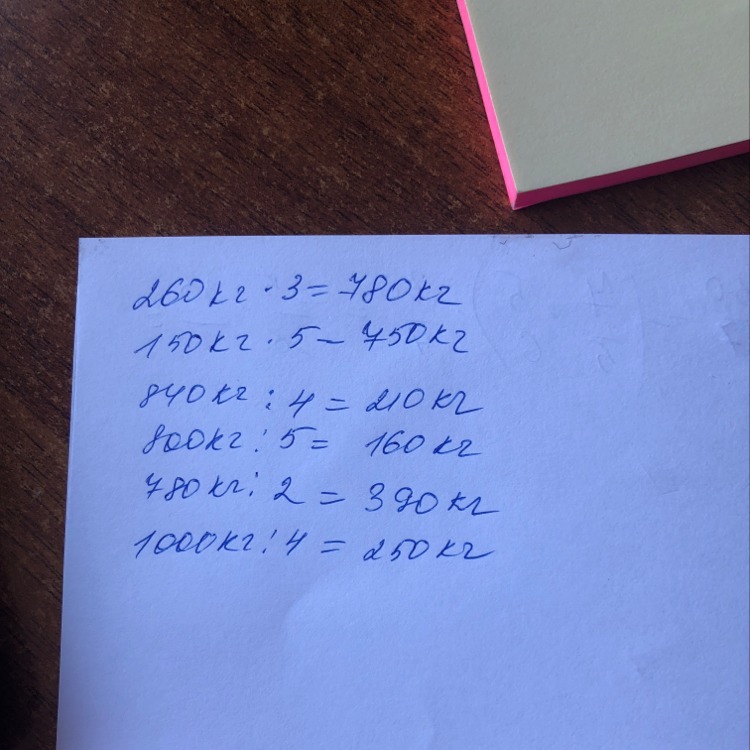 260кг · 3 = 780кг
150кг · 5 – 750кг
840кг : 4 = 210кг
800кг : 5 = 160кг
780кг : 2 = 390кг
1000кг : 4 = 250кг